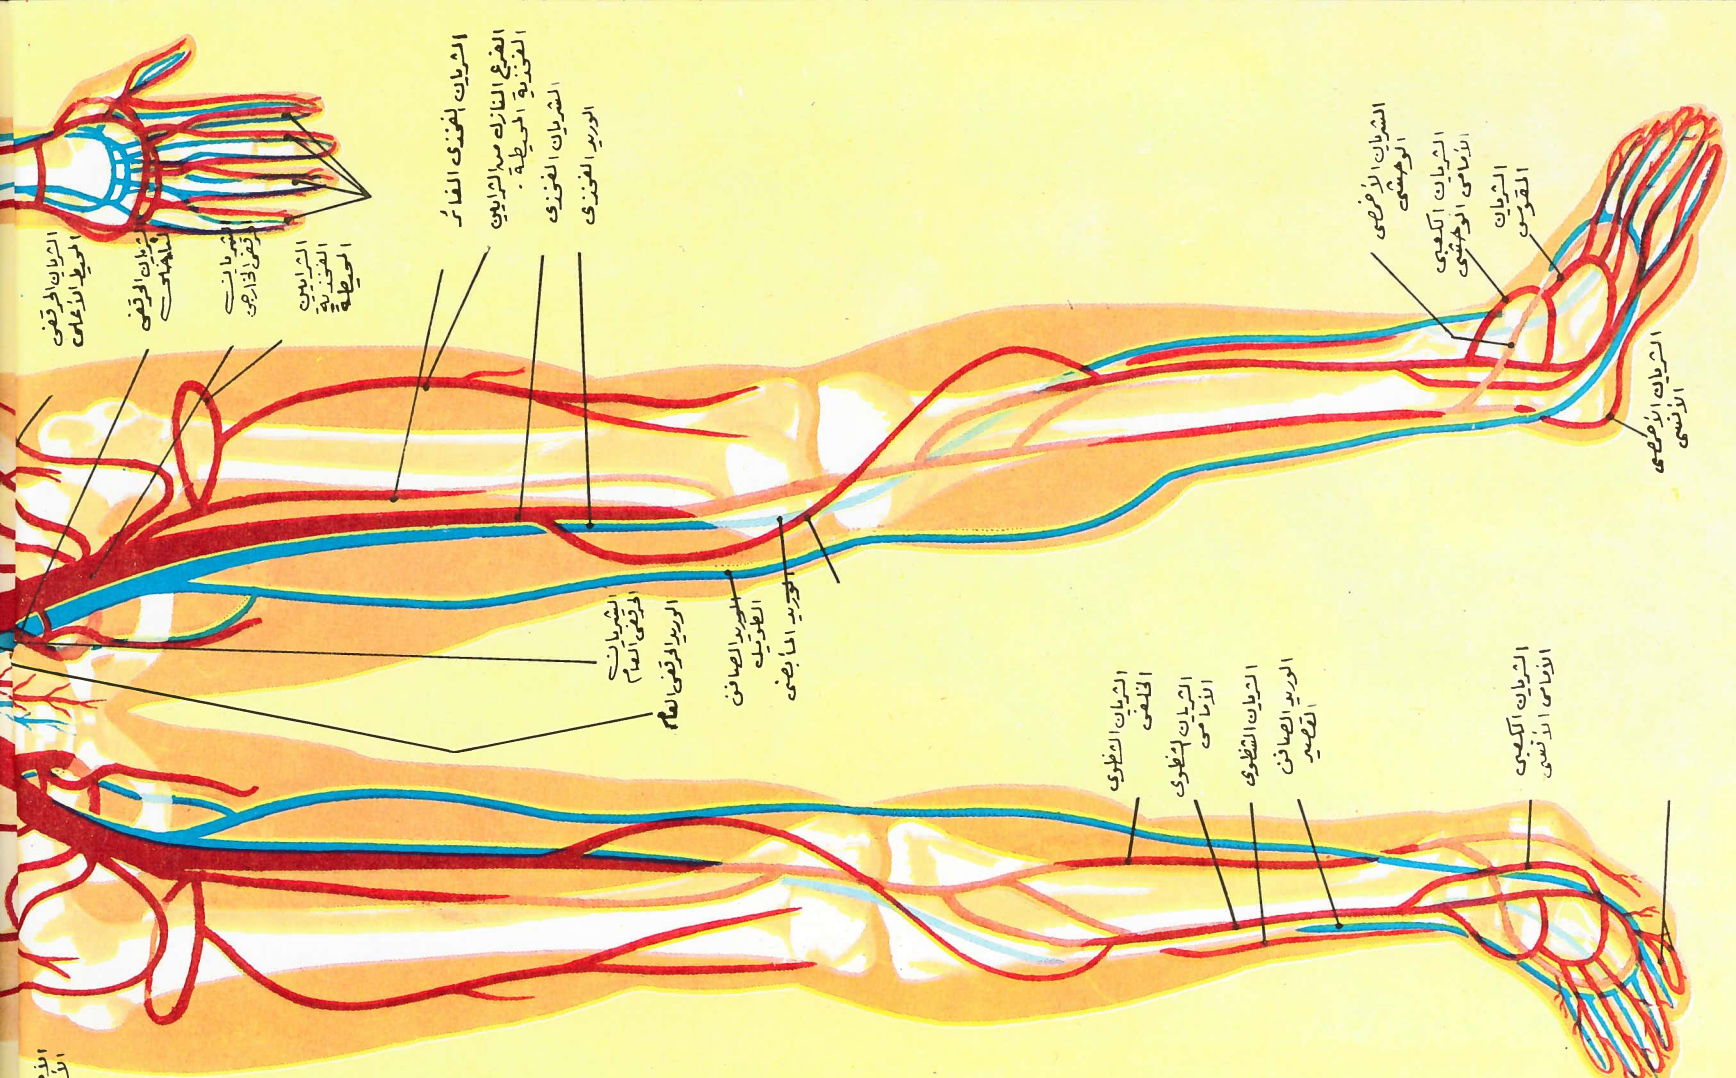 الشريان الحرقفى
المحيط الأعلى
الشريان الحرقفى
الشريان
الحرقفى الخارجى
الشرايين
الفخذية
المحيطة
الشريان الفخذى الغائر
الفرع النازل من الشرايين
الفخذية المحيطة .
الشريان الفخذى
الوريد الفخذى
الشريان
الحرقفى العام
الوريد الحرقفى العام
الوريد الصافن
الطويل
الوريد المأبضى
الشريان الأخمصى
الوحشى
الشريان الكعبى
الأمامى الوحشى
الشريان
المقوس
الشريان الأخمصى
الأنسى
الشريان الشظوى
الخلفى
الشريان الشظوى
الأمامى
الشريان الشظوى
الوريد الصافن
القصير
الشريان الكعبى
الأمامى الأنسى